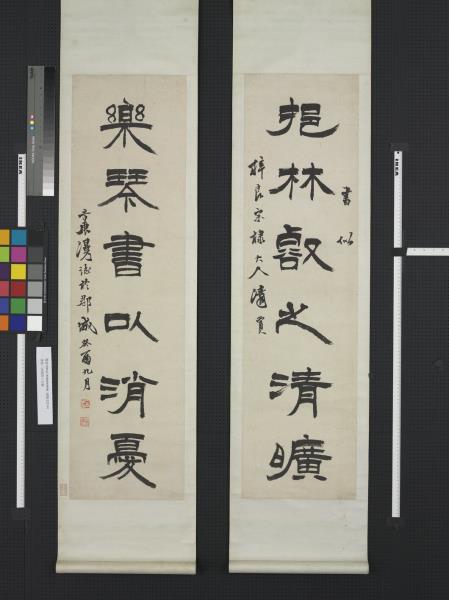 挹林㕡之清曠
書似
梓良宗棣大人清賞
樂琴書以消憂
於郡城癸酉九月